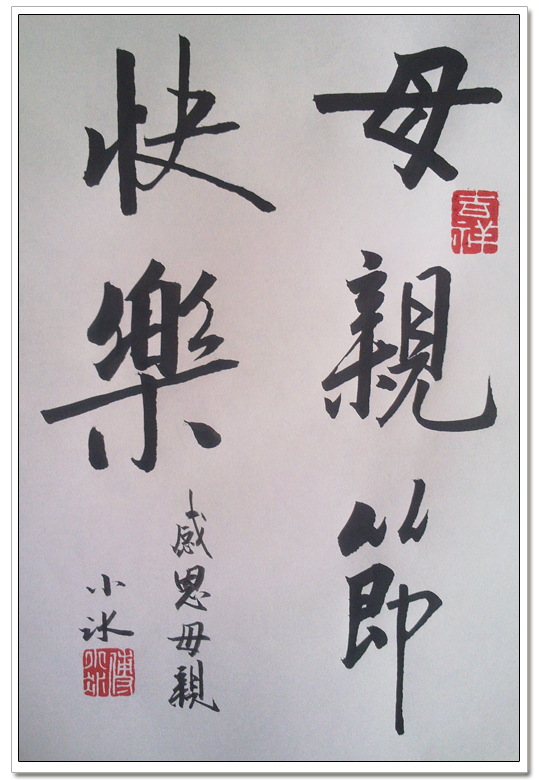 母親節
吉祥
快樂
感恩母親
小冰